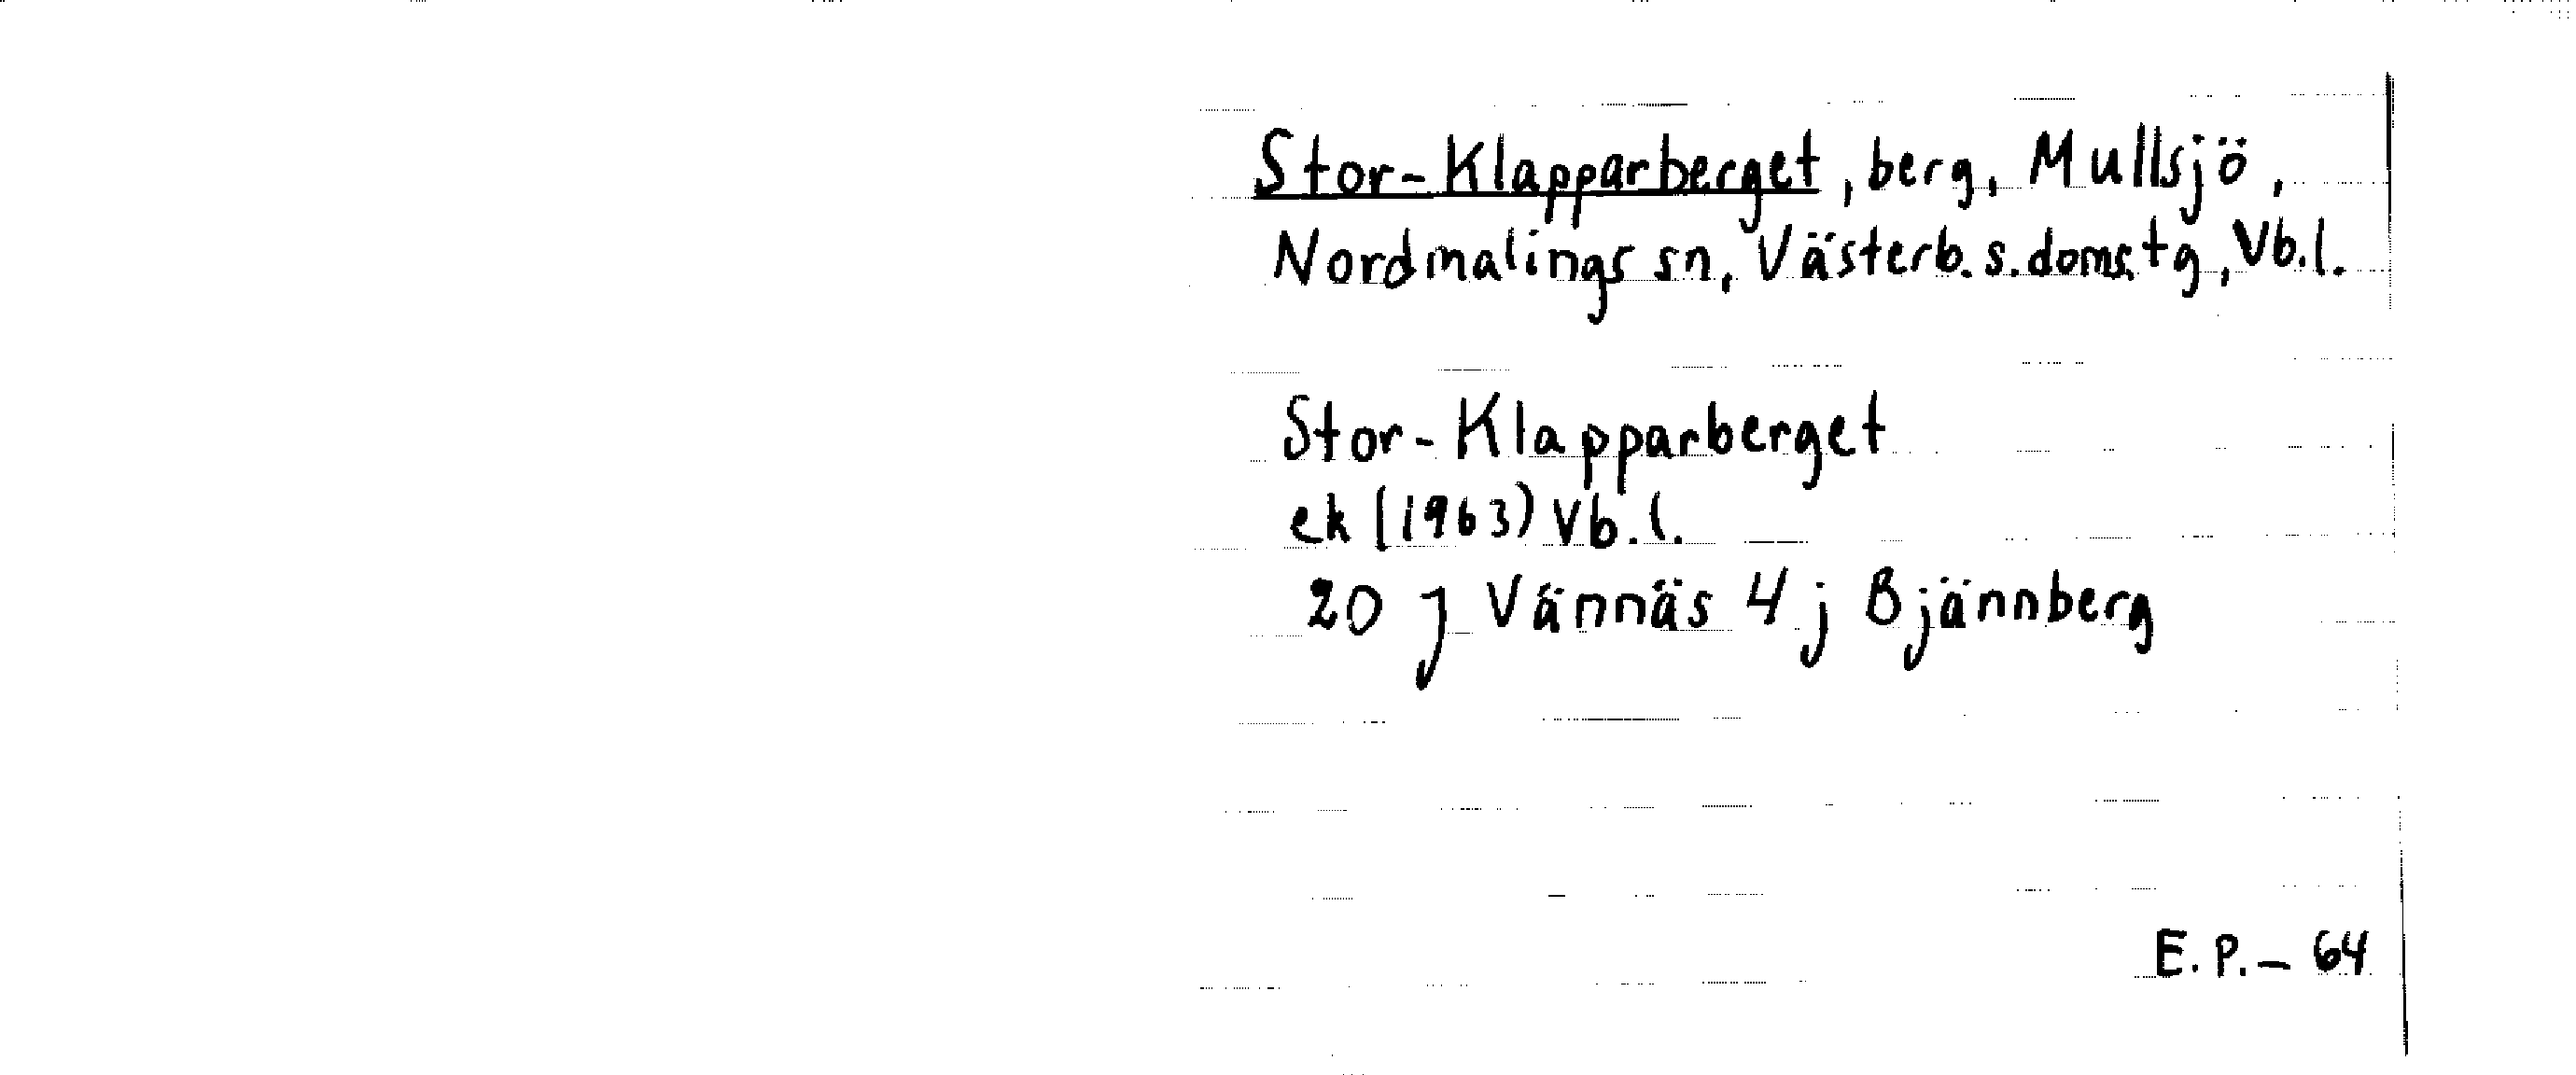 Stor-Klapparberget, berg, Mullsjö,
Nordmalings sn, Västerb. s. doms.tg, Vb.l.
Stor-Klapparberget
ek (1963) Vb.l.
20 J Vännäs 4 j Bjännberg
E.P.- 64